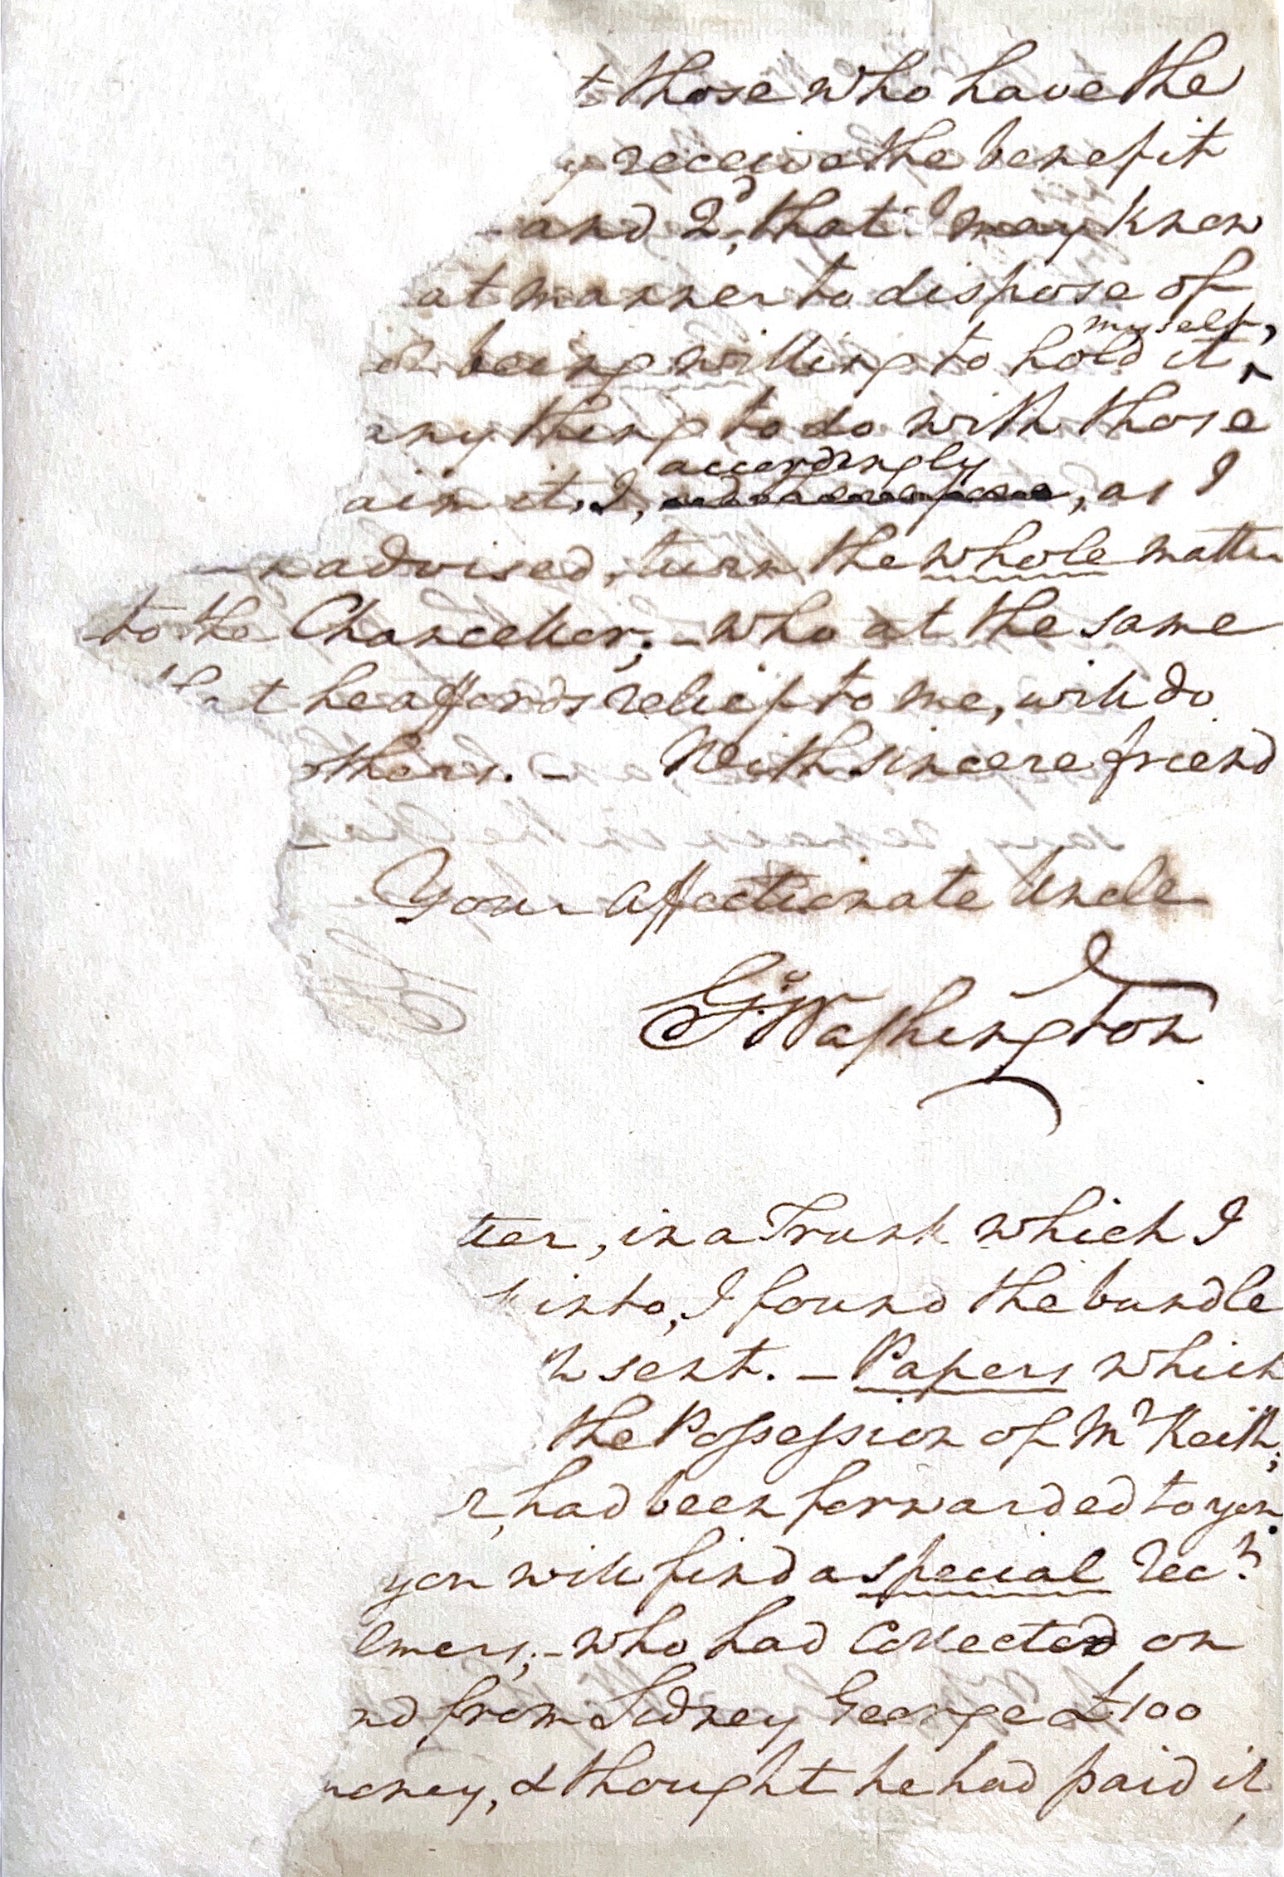 t those who have the
receive the benefit
and 2d, that I may know
at manner to dispose of
being willing to hold it, myself,
any thing to do with those
aim it. I, accordingly, as I
advised, turn the whole matter
to the Chancellor; – who at the same
that he affords relief to me, will do
others. – With sincere friend
Your Affectionate Uncle
Go: Washington
tter, in a Trunk which I
into, I found the bundle
n sent. – Papers which
the Possession of Mr Keith;
r, had been forwarded to you.
you will find a special Rect
lmers; – who had Collected on
nd from Sidney George £100
money, & thought he had paid it,